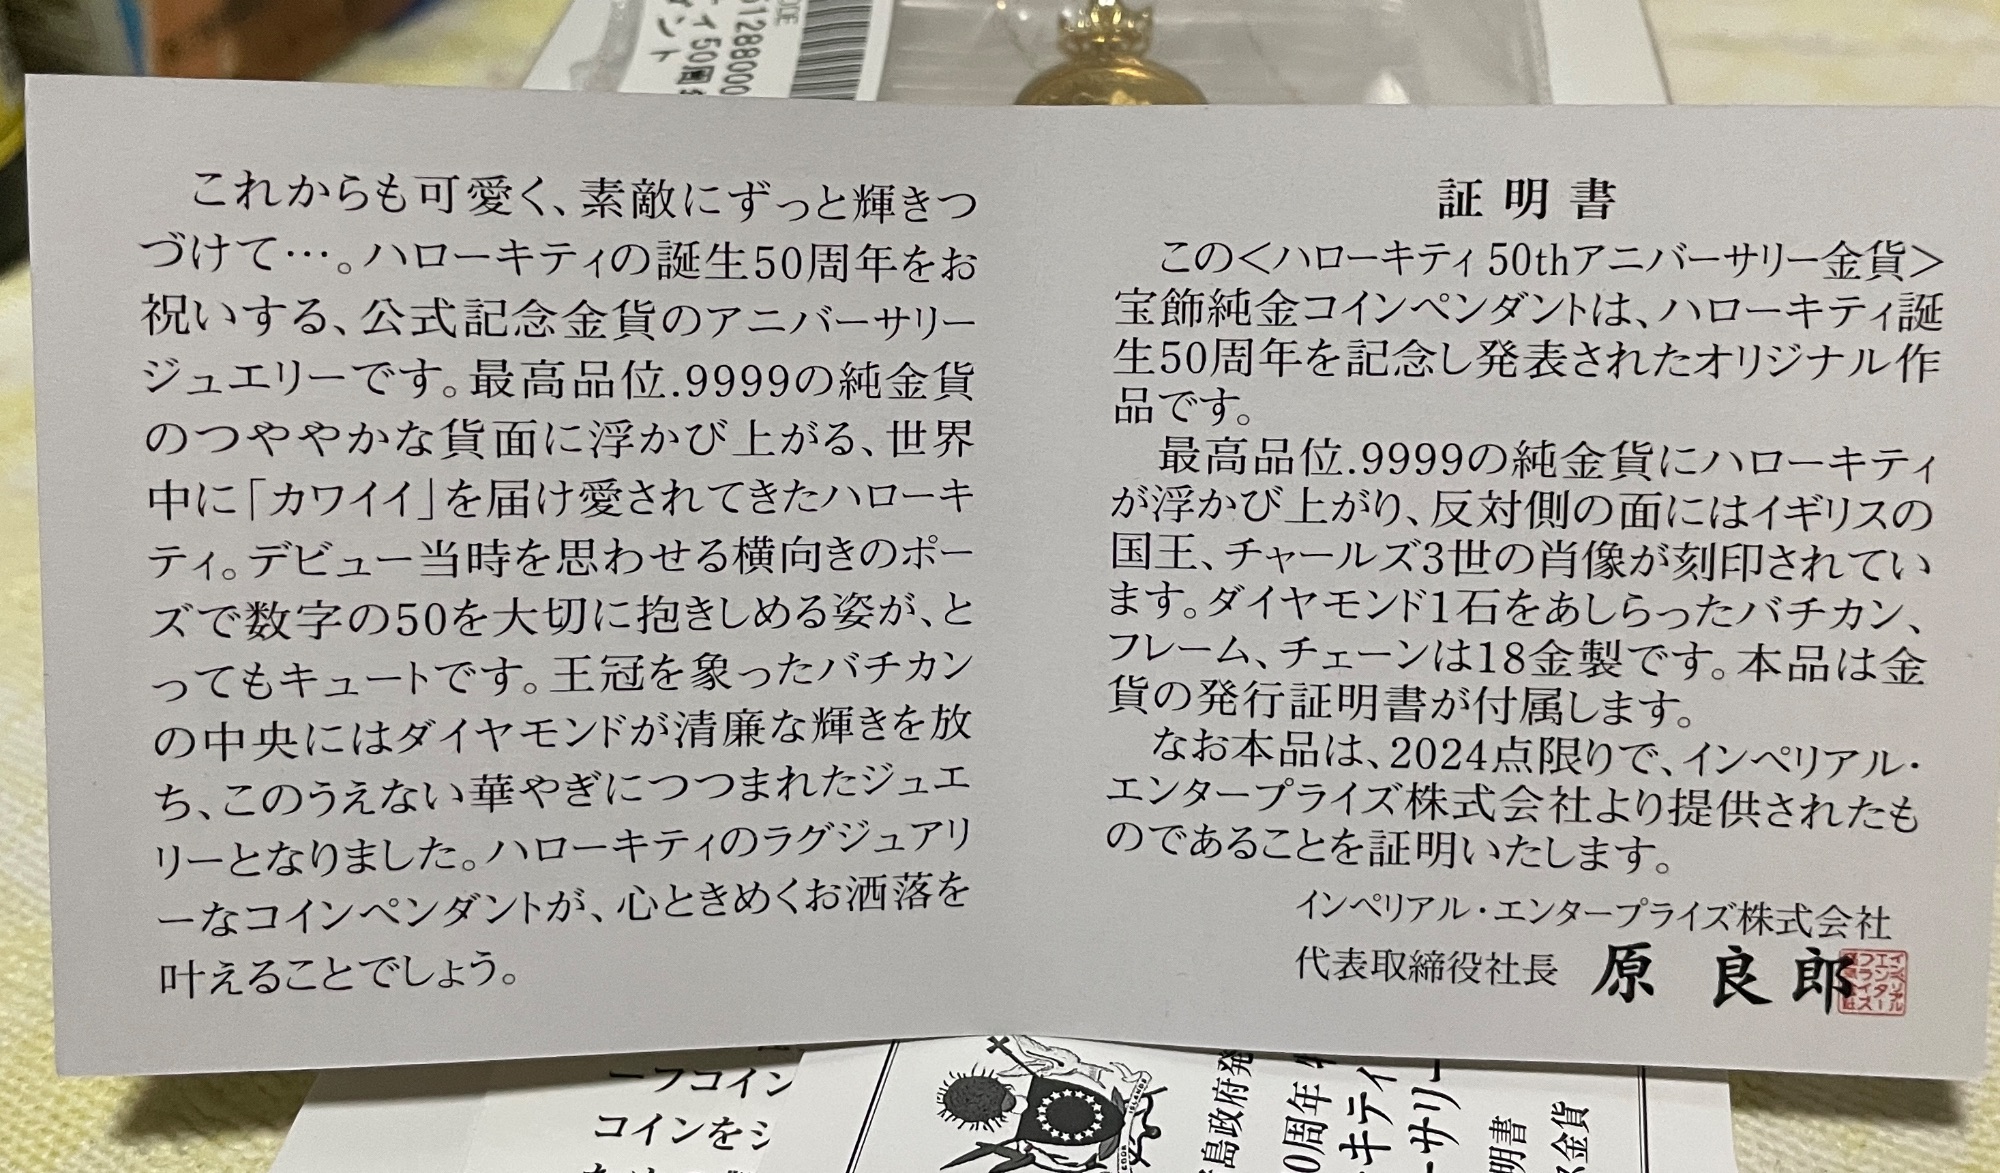 これからも可愛く、素敵にずっと輝きつ
づけて…。ハローキティの誕生50周年をお
祝いする、公式記念金貨のアニバーサリー
ジュエリーです。最高品位.9999の純金貨
のつややかな貨面に浮かび上がる、世界
中に「カワイイ」を届け愛されてきたハローキ
ティ。デビュー当時を思わせる横向きのポー
ズで数字の50を大切に抱きしめる姿が、と
ってもキュートです。王冠を象ったバチカン
の中央にはダイヤモンドが清廉な輝きを放
ち、このうえない華やぎにつつまれたジュエ
リーとなりました。ハローキティのラグジュアリ
ーなコインペンダントが、心ときめくお洒落を
叶えることでしょう。
証明書
この＜ハローキティ50thアニバーサリー金貨＞
宝飾純金コインペンダントは、ハローキティ誕
生50周年を記念し発表されたオリジナル作
品です。
最高品位.9999の純金貨にハローキティ
が浮かび上がり、反対側の面にはイギリスの
国王、チャールズ3世の肖像が刻印されてい
ます。ダイヤモンド1石をあしらったバチカン、
フレーム、チェーンは18金製です。本品は金
貨の発行証明書が付属します。
なお本品は、2024点限りで、インペリアル・
エンタープライズ株式会社より提供されたも
のであることを証明いたします。
インペリアル・エンタープライズ株式会社
代表取締役社長 原 良郎
ーフコイン
コインをジ
島政府発
0周年
キティ
ーサリー
明書
金貨